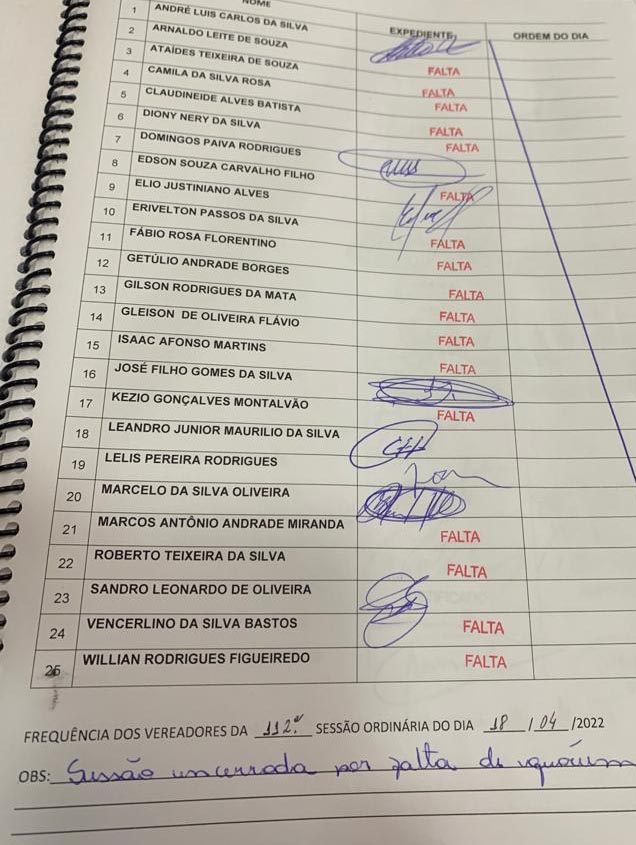 NOME EXPEDIENTE ORDEM DO DIA
1 ANDRÉ LUIS CARLOS DA SILVA
2 ARNALDO LEITE DE SOUZA FALTA
3 ATAÍDES TEIXEIRA DE SOUZA FALTA
4 CAMILA DA SILVA ROSA FALTA
5 CLAUDINEIDE ALVES BATISTA FALTA
6 DIONY NERY DA SILVA FALTA
7 DOMINGOS PAIVA RODRIGUES
8 EDSON SOUZA CARVALHO FILHO FALTA
9 ELIO JUSTINIANO ALVES
10 ERIVELTON PASSOS DA SILVA FALTA
11 FÁBIO ROSA FLORENTINO FALTA
12 GETÚLIO ANDRADE BORGES FALTA
13 GILSON RODRIGUES DA MATA FALTA
14 GLEISON DE OLIVEIRA FLÁVIO FALTA
15 ISAAC AFONSO MARTINS FALTA
16 JOSÉ FILHO GOMES DA SILVA
17 KEZIO GONÇALVES MONTALVÃO FALTA
18 LEANDRO JUNIOR MAURILIO DA SILVA
19 LELIS PEREIRA RODRIGUES
20 MARCELO DA SILVA OLIVEIRA
21 MARCOS ANTÔNIO ANDRADE MIRANDA FALTA
22 ROBERTO TEIXEIRA DA SILVA FALTA
23 SANDRO LEONARDO DE OLIVEIRA
24 VENCERLINO DA SILVA BASTOS FALTA
25 WILLIAN RODRIGUES FIGUEIREDO FALTA
FREQUÊNCIA DOS VEREADORES DA 112ª SESSÃO ORDINÁRIA DO DIA 18 / 04 /2022
OBS: Sessão encerrada por falta de quórum